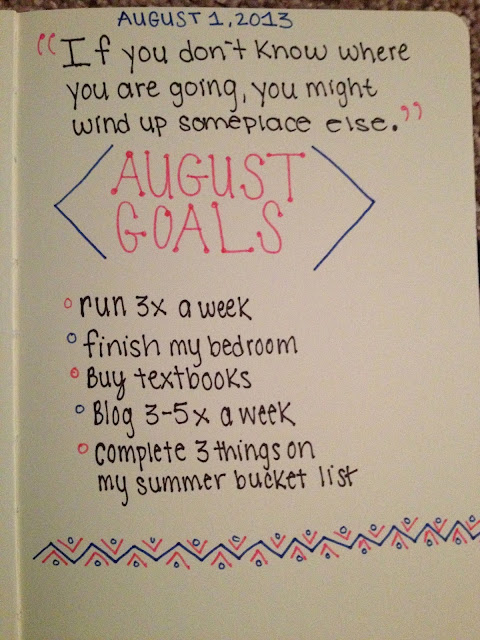 AUGUST 1, 2013
“If you don't know where
you are going, you might
wind up someplace else.”
AUGUST
GOALS
run 3x a week
finish my bedroom
Buy textbooks
Blog 3-5x a week
complete 3 things on
my summer bucket list